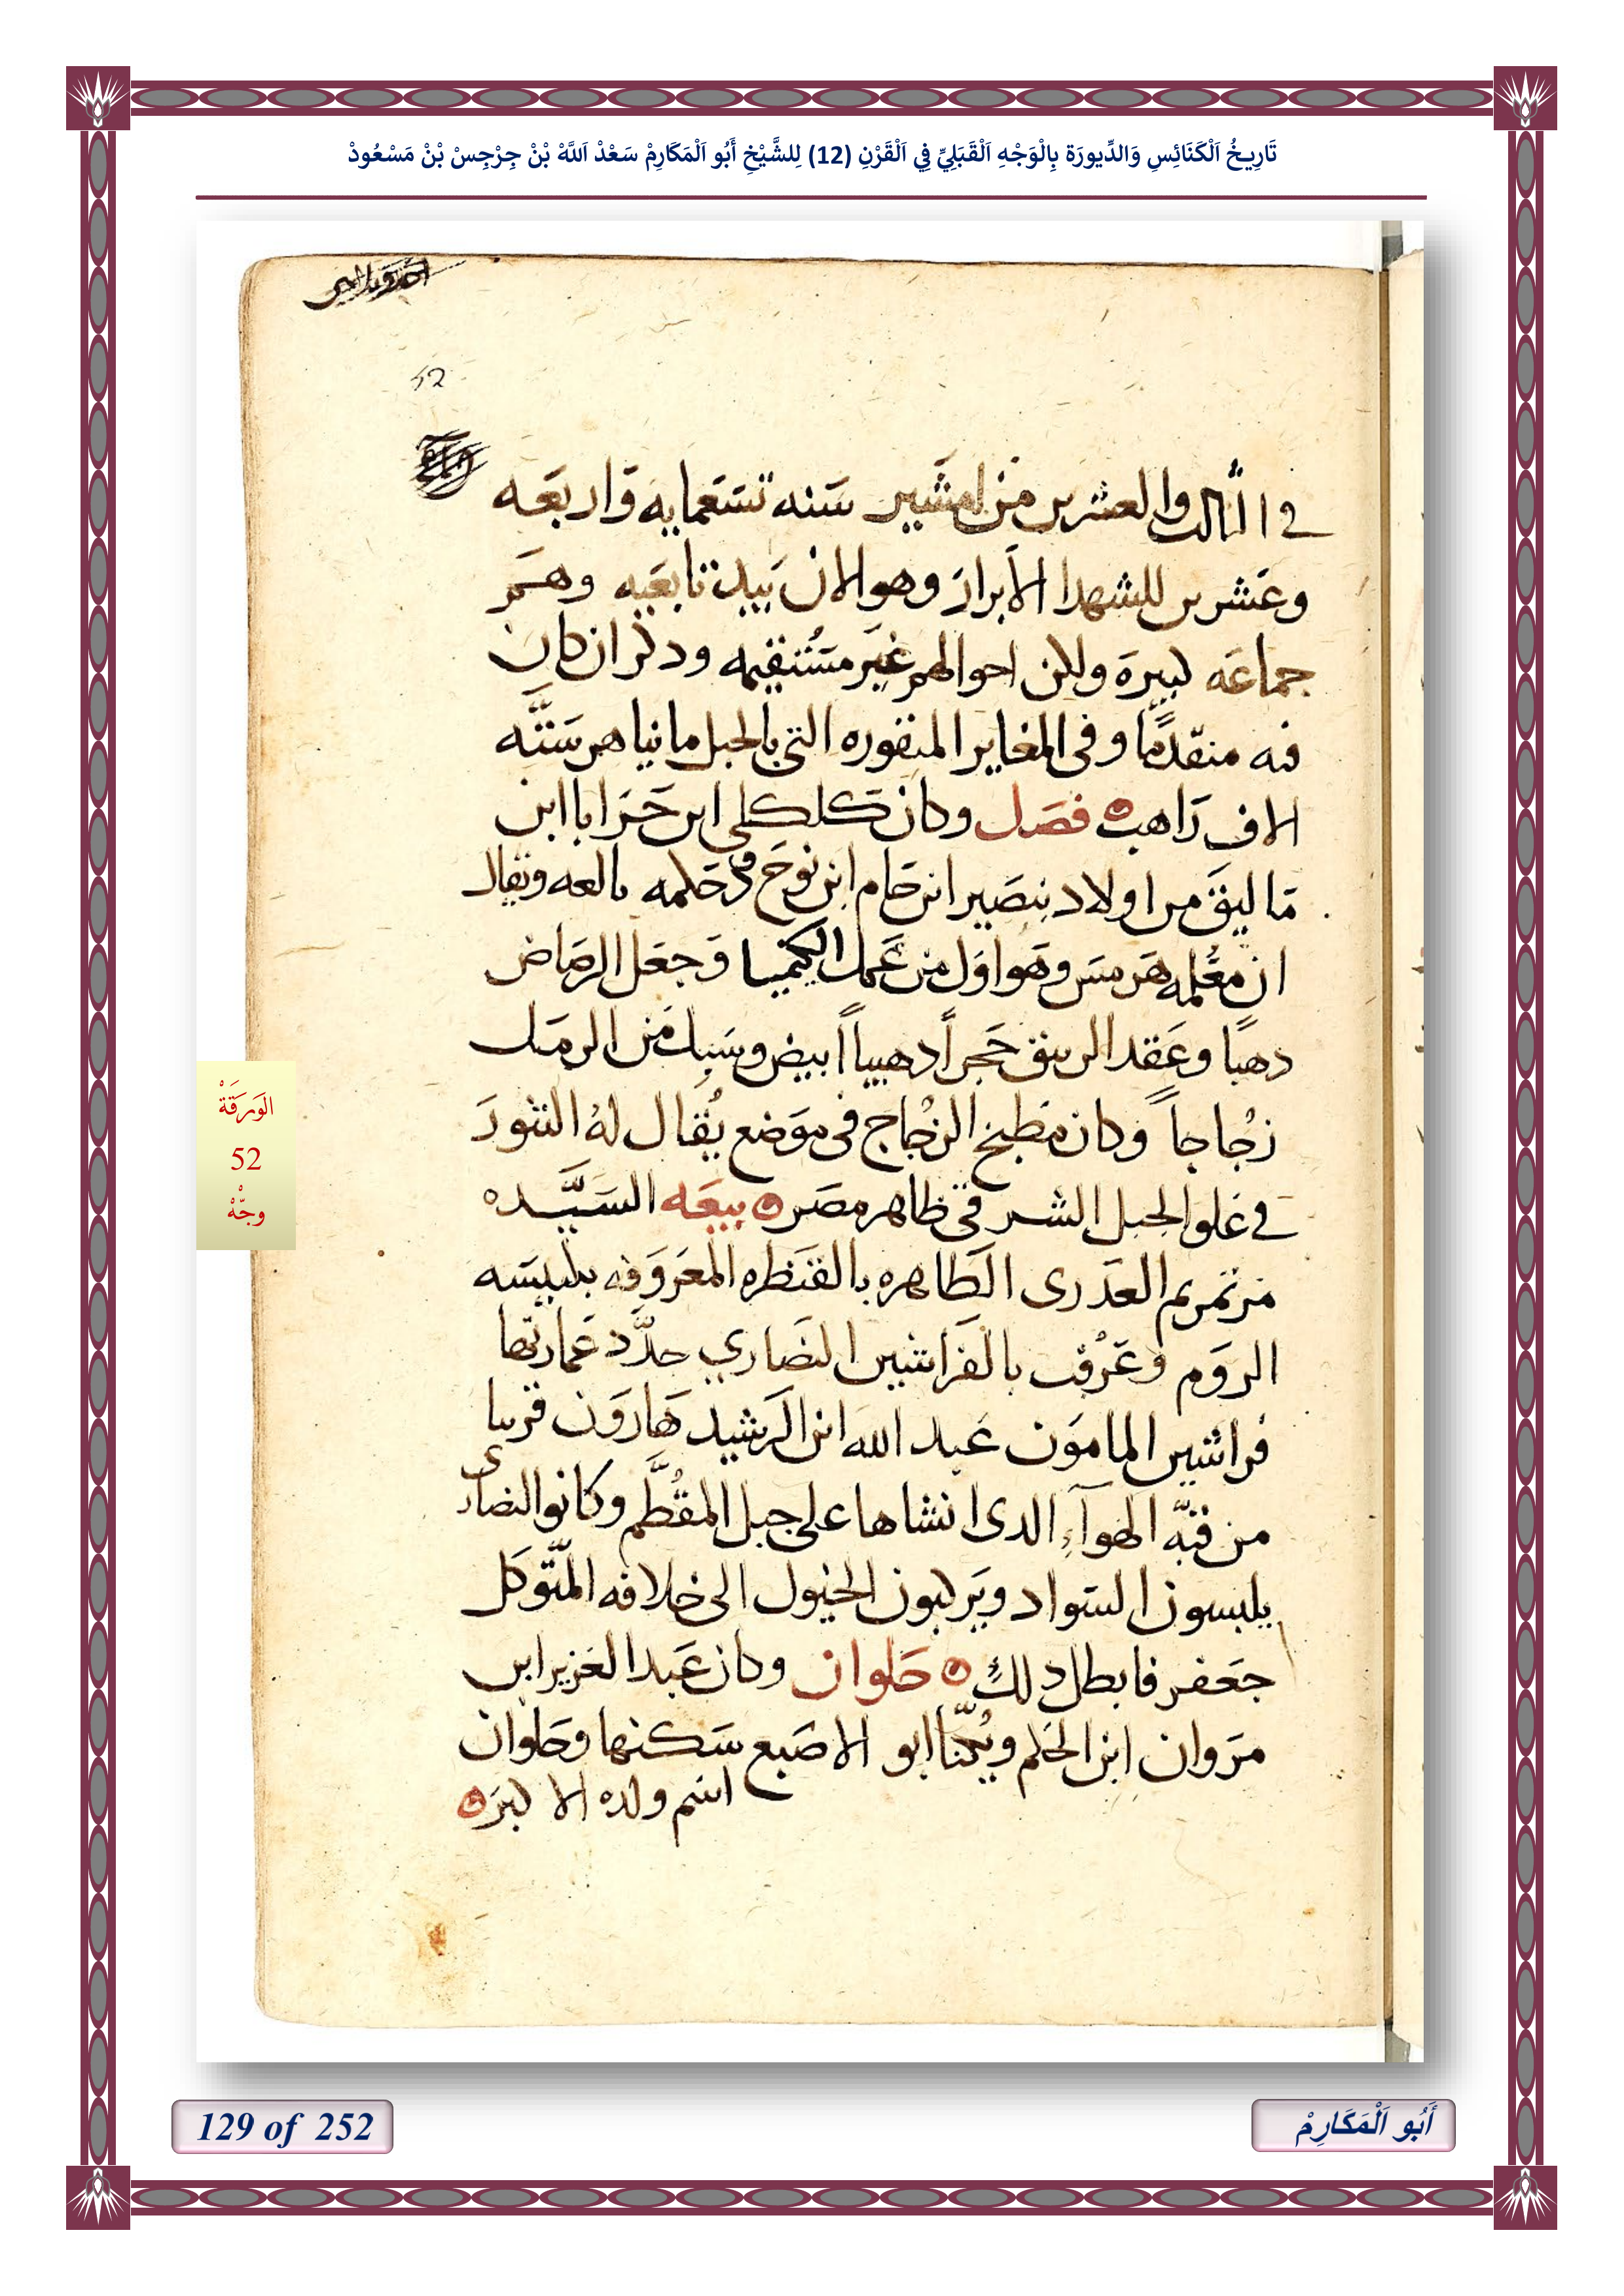 تَارِيخُ اَلْكَنَائِسِ وَالدِّيورَة بِالْوَجْهِ اَلْقَبَلِيِّ فِي اَلْقَرْنِ (12) لِلشَّيْخِ أَبُو اَلْمَكَارِمْ سَعْدْ اَللَّهْ بْنْ جِرْجِسْ بْنْ مَسْعُودْ
52
في الثالث والعشرين من امشير سنه تسعمايه واربعه
وعشرين للشهدا الابرار وهو الان بيد تابعيه وهم
جماعه كبيرة ولكن احوالهم غير مستقيمه ودكر ان كان
فيه متقدمًا وفي المغاير المنقوره التي بالجبل ما يناهز ستّه
الاف راهب ه فصل وكان كلكلي ابن حرابا ابن
ماليق من اولاد بنصير ابن حام ابن نوح وحكمه بالعه ويقال
ان معلمه هرمس وهو اول من عمل الكيميا وجعل الرصاص
دهبًا وعقد الريبق حجراً دهبياً ابيض وسبك من الرمل
زجاجاً وكان مطبخ الزجاج في موضع يُقال لهُ التنور
في علو الجبل الشرقي ظاهر مصر ه بيعه السيّده
مرتمريم العدرى الطاهره بالقنطره المعروفه بكنيسه
الروم وعُرفت بالفراشين النصاري جدّد عمارتها
فراشين المامون عبد الله ابن الرشيد هارون قريبا
من قبّه الهوآء الدى انشاها على جبل المقُطّم وكانوا النصارى
يلبسون السواد ويركبون الخيول الى خلافه المتّوكل
جعفر فابطل دلك ه حلوان وكان عبد العزيز ابن
مروان ابن الحكم ويُكنّا ابو الاصبع سكنها وحلوان
اسم ولده الاكبر ه
الوَرَقَةْ
52
وجّهْ
129 of 252
أَبُو اَلْمَكَارِمْ